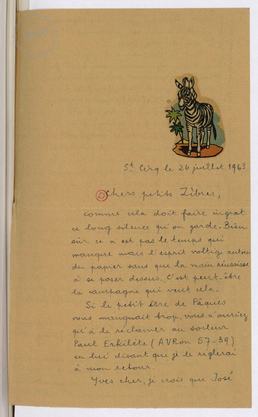 St Cirq le 26 juillet 1963
Chers petits Zèbres,
comme cela doit faire ingrat
ce long silence qu'on garde. Bien
sûr ce n'est pas le temps qui
manque mais l'esprit voltige autour
du papier sans que la main réussisse
à se poser dessus. C'est peut-être
la campagne qui veut cela.
Si le petit être de Pâques
vous manquait trop, vous n'auriez
qu'à le réclamer au docteur
Paul (AVRon 57-39)
en lui disant que je le réglerai
à mon retour.
Yves cher, je crois que José